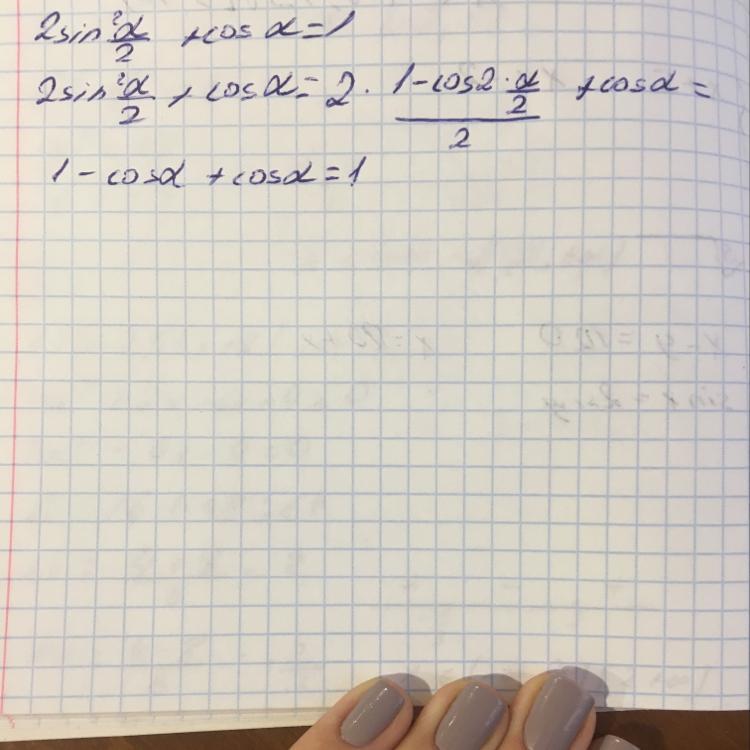 2sin²α/2 + cos α = 1
2sin²α/2 + cos α = 2 · (1 - cos2 · α/2)/2 + cosα =
1 - cosα + cosα = 1